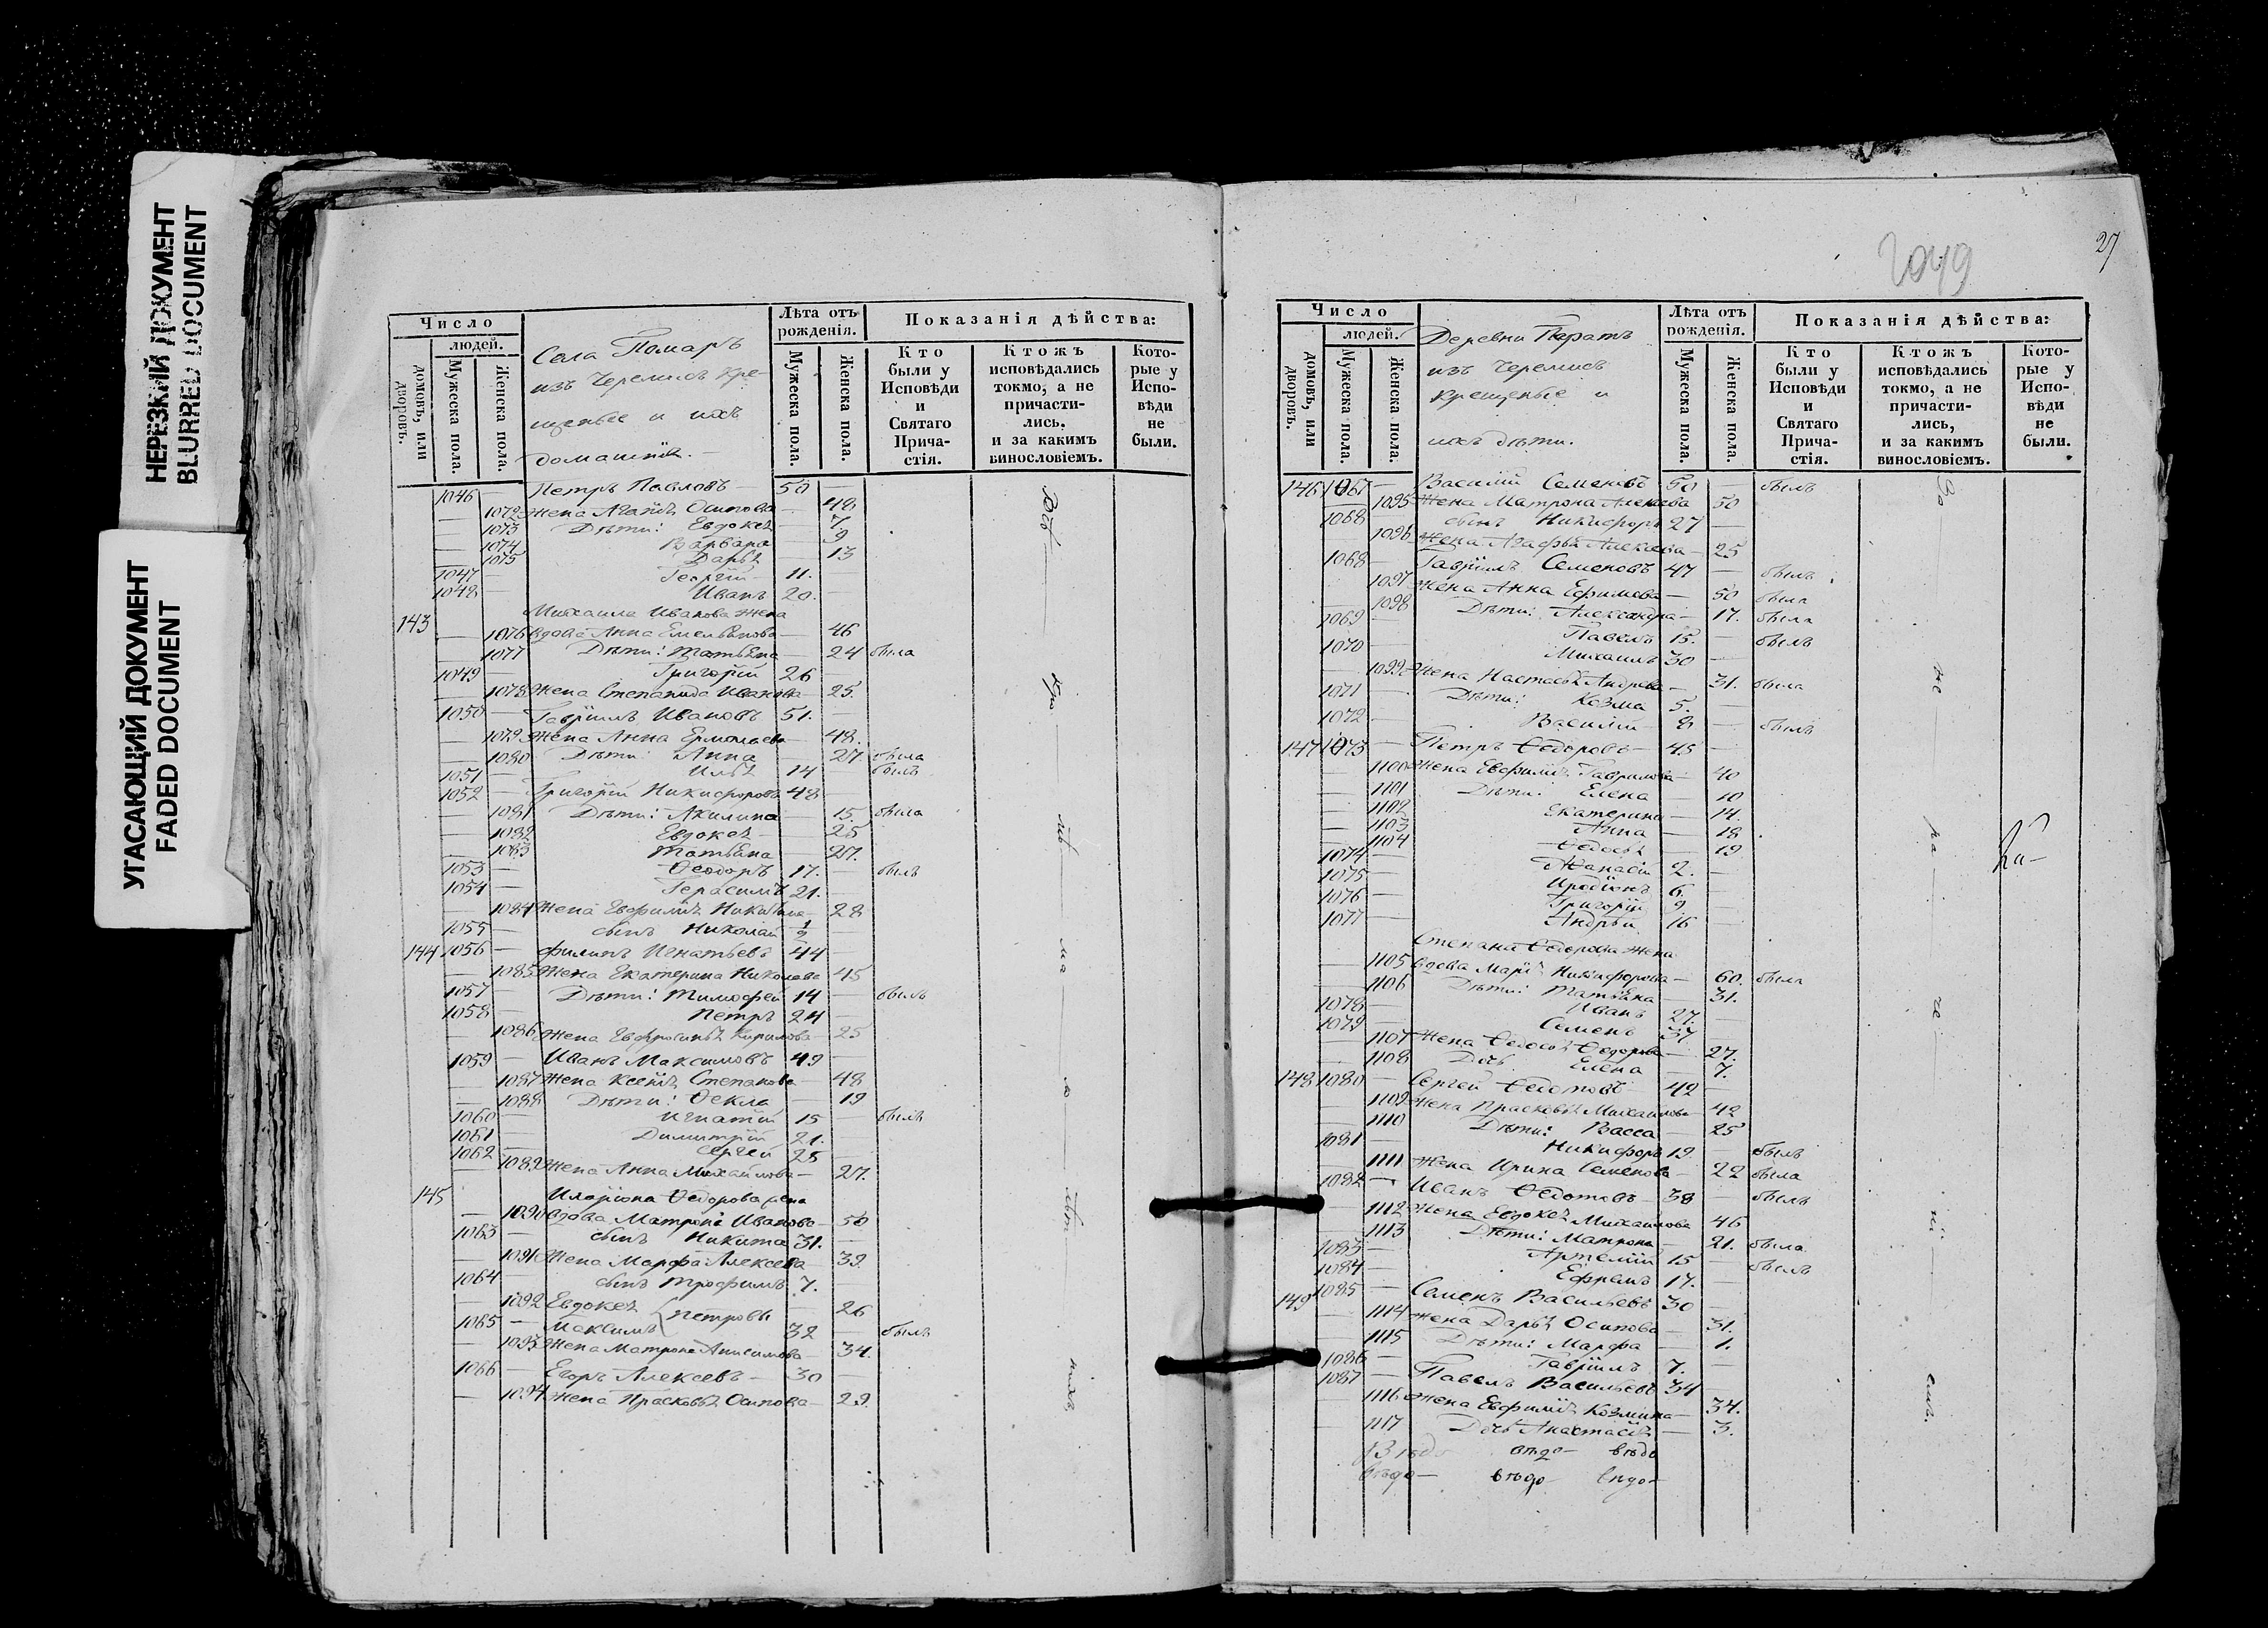 НЕРЕЗКИЙ ДОКУМЕНТ
BLURRED DOCUMENT
УГАСАЮЩИЙ ДОКУМЕНТ
FADED DOCUMENT
Число
людей.
домовъ, или дворовъ.
Мужеска пола.
Женска пола.
Села Помаръ
изъ Черемисъ кре-
щеные и ихъ
домашніе. —
Лѣта отъ рожденія.
Мужеска пола.
Женска пола.
Показанія дѣйства:
Кто были у Исповѣди и Святаго Прича-стія.
Ктожъ исповѣдались токмо, а не причасти-лись. и за какимъ винословіемъ.
Кото-рые у Испо-вѣди не были.
1046 — Петръ Павловъ — 50 —
1072 Жена Агаѳія Осипова — 48
1073 Дѣти: Евдокея — 7
1074 Варвара — 9
1075 Дарья — 13
1047 — Георгій — 11. —
1048 — Иванъ 20. —
143 Михаила Иванова жена
1076 вдова Анна Емельянова — 46
1077 Дѣти: Татьяна — 24 была
1049 — Григорій 26 —
1078 Жена Степанида Иванова — 25.
1050 — Гавріилъ Ивановъ 51. —
1079 Жена Анна Ермолаева — 48.
1080 Дѣти: Анна — 27. была
1051 — Илья 14 — былъ
1052 — Григорій Никифоровъ 48 —
1081 Дѣти: Акилина — 15. была
1082 Евдокея — 25
1083 Татьяна — 27.
1053 — Ѳеодоръ 17. — былъ
1054 — Герасимъ 21. —
1084 Жена Евфимія Никитина — 28
1055 — сынъ Николай ½ —
144 1056 — Филипъ Игнатьевъ 44 —
1085 Жена Екатерина Николаева 45
1057 — Дѣти: Тимоѳей 14 — былъ
1058 — Петръ 24 —
1086 Жена Евфросинья Кирилова — 25
1059 — Иванъ Максимовъ 49 —
1087 Жена Ксенія Степанова — 48
1088 Дѣти: Ѳекла — 19
1060 — Игнатій 15 былъ
1061 — Димитрій 21. —
1062 — Сергей 25 —
1089 Жена Анна Михайлова — 27.
145 Иларіона Ѳедорова жена
1090 вдова Матрона Иванова — 50
1063 — сынъ Никита 31. —
1091 Жена Марѳа Алексеева — 39.
1064 — сынъ Трофимъ 7. —
1092 Евдокея Петровы — 26
1065 — Максимъ 32 — былъ
1093 Жена Матрона Анисимова — 34.
1066 — Егоръ Алексеевъ — 30 —
1094 Жена Прасковья Осипова — 29.
2049
27
Число
людей.
домовъ, или дворовъ.
Мужеска пола.
Женска пола.
Деревни Паратъ
изъ Черемисъ
крещеные и
ихъ дѣти.
Лѣта отъ рожденія.
Мужеска пола.
Женска пола.
Показанія дѣйства:
Кто были у Исповѣди и Святаго Прича-стія.
Ктожъ исповѣдались токмо, а не причасти-лись, и за какимъ винословіемъ.
Кото-рые у Испо-вѣди не были.
146 1067 — Василій Семеновъ 50 — былъ
1095 Жена Матрона Алексеева 50
1068 сынъ Никифоръ 27 —
1096 Жена Агафья Алексеева — 25
1068 — Гавріилъ Семеновъ 47 — былъ
1097 Жена Анна Ефимова — 50 была
1098 Дѣти: Александра — 17. была
1069 — Павелъ 15. — былъ
1070 — Михаилъ 30 —
1099 Жена Настасья Андреева — 31. была
1071 — Дѣти: Козма 5. —
1072 — Василій 8 — былъ
147 1073 — Петръ Ѳедоровъ — 45 —
1100 Жена Евфимія Гаврилова — 40
1101 Дѣти: Елена — 10
1102 Екатерина — 14.
1103 Анна — 18
1104 Ѳедосья — 19
1074 — Аѳанасій 2. —
1075 — Иродіонъ 6. —
1076 — Григорій 9 —
1077 — Андрей 16 —
Степана Ѳедорова жена
1105 вдова Марія Никифорова — 60. была
1106 Дѣти: Татьяна — 31.
1078 — Иванъ 27. —
1079 — Семенъ 37 —
1107 Жена Ѳедосья Ѳедорова — 27.
1108 Дочь Елена — 7.
148 1080 — Сергей Ѳедотовъ 42 —
1109 Жена Прасковья Михаилова — 42
1110 Дѣти: Васса — 25
1081 — Никифоръ 19. — былъ
1111 Жена Ирина Семенова — 22 была
1082 — Иванъ Ѳедотовъ — 38 — былъ
1112 Жена Евдокея Михаилова 46
1113 Дѣти: Матрона — 21. была
1083 — Артемій 15 — былъ
1084 — Ефремъ 17. —
149 1085 — Семенъ Васильевъ 30 —
1114 Жена Дарья Осипова — 31.
1115 Дѣти: Марѳа — 1.
1086 — Гавріилъ 7. —
1087 — Павелъ Васильевъ 34 —
1116 Жена Евфимія Козмина — 34.
1117 Дочь Анастасія — 3.